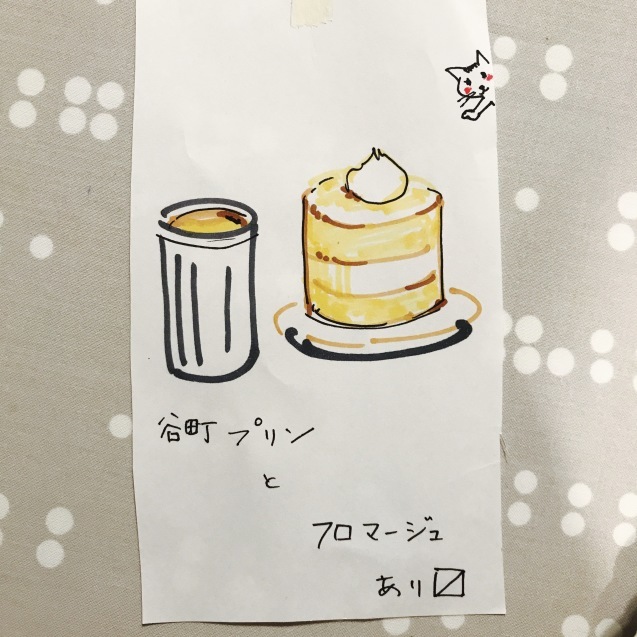 谷町プリン
と
フロマージュ
あり〼